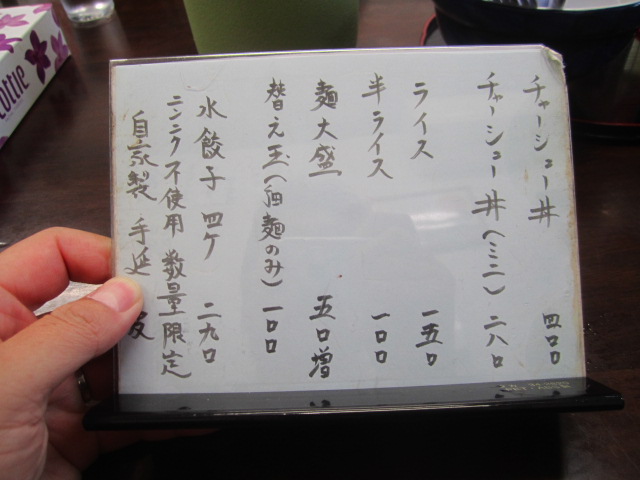 チャーシュー丼 四〇〇
チャーシュー丼(ミニ) 二八〇
ライス 一五〇
半ライス 一〇〇
麺大盛 五〇増
替え玉(細麺のみ) 一〇〇
水餃子 四ケ 二九〇
ニンニク不使用 数量限定
自家製 手延 皮
ottie